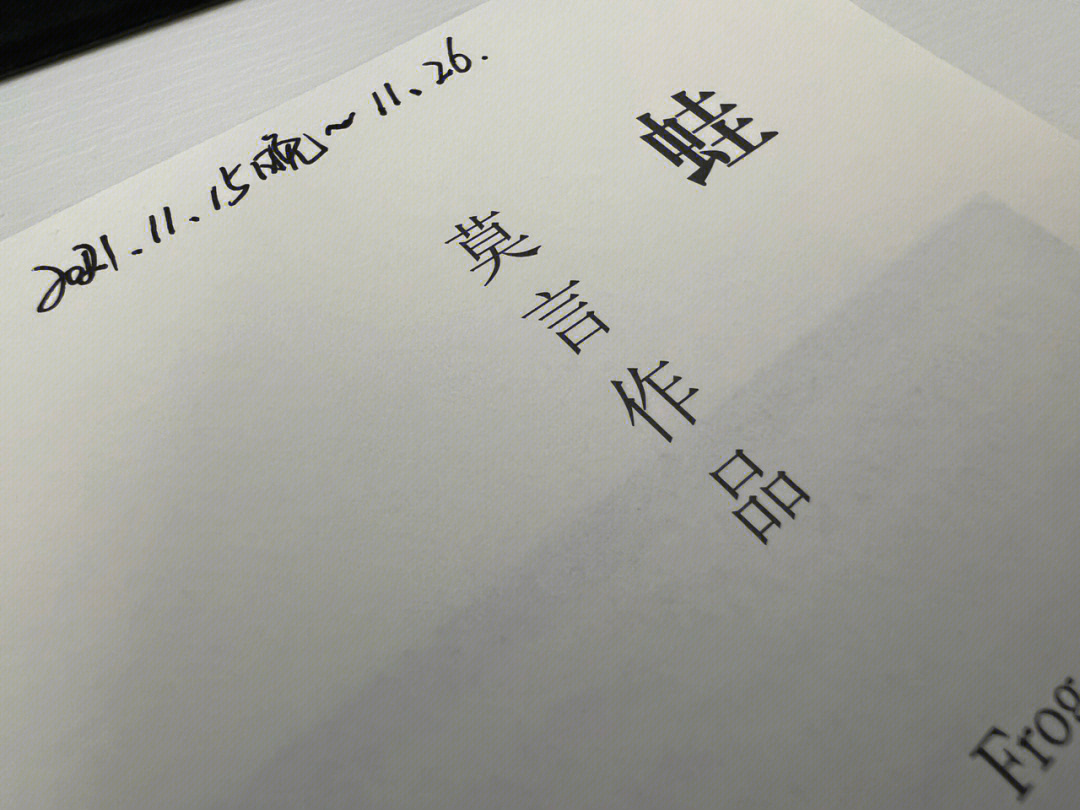 2021.11.15晚~11.26.
蛙
莫言作品
Frog